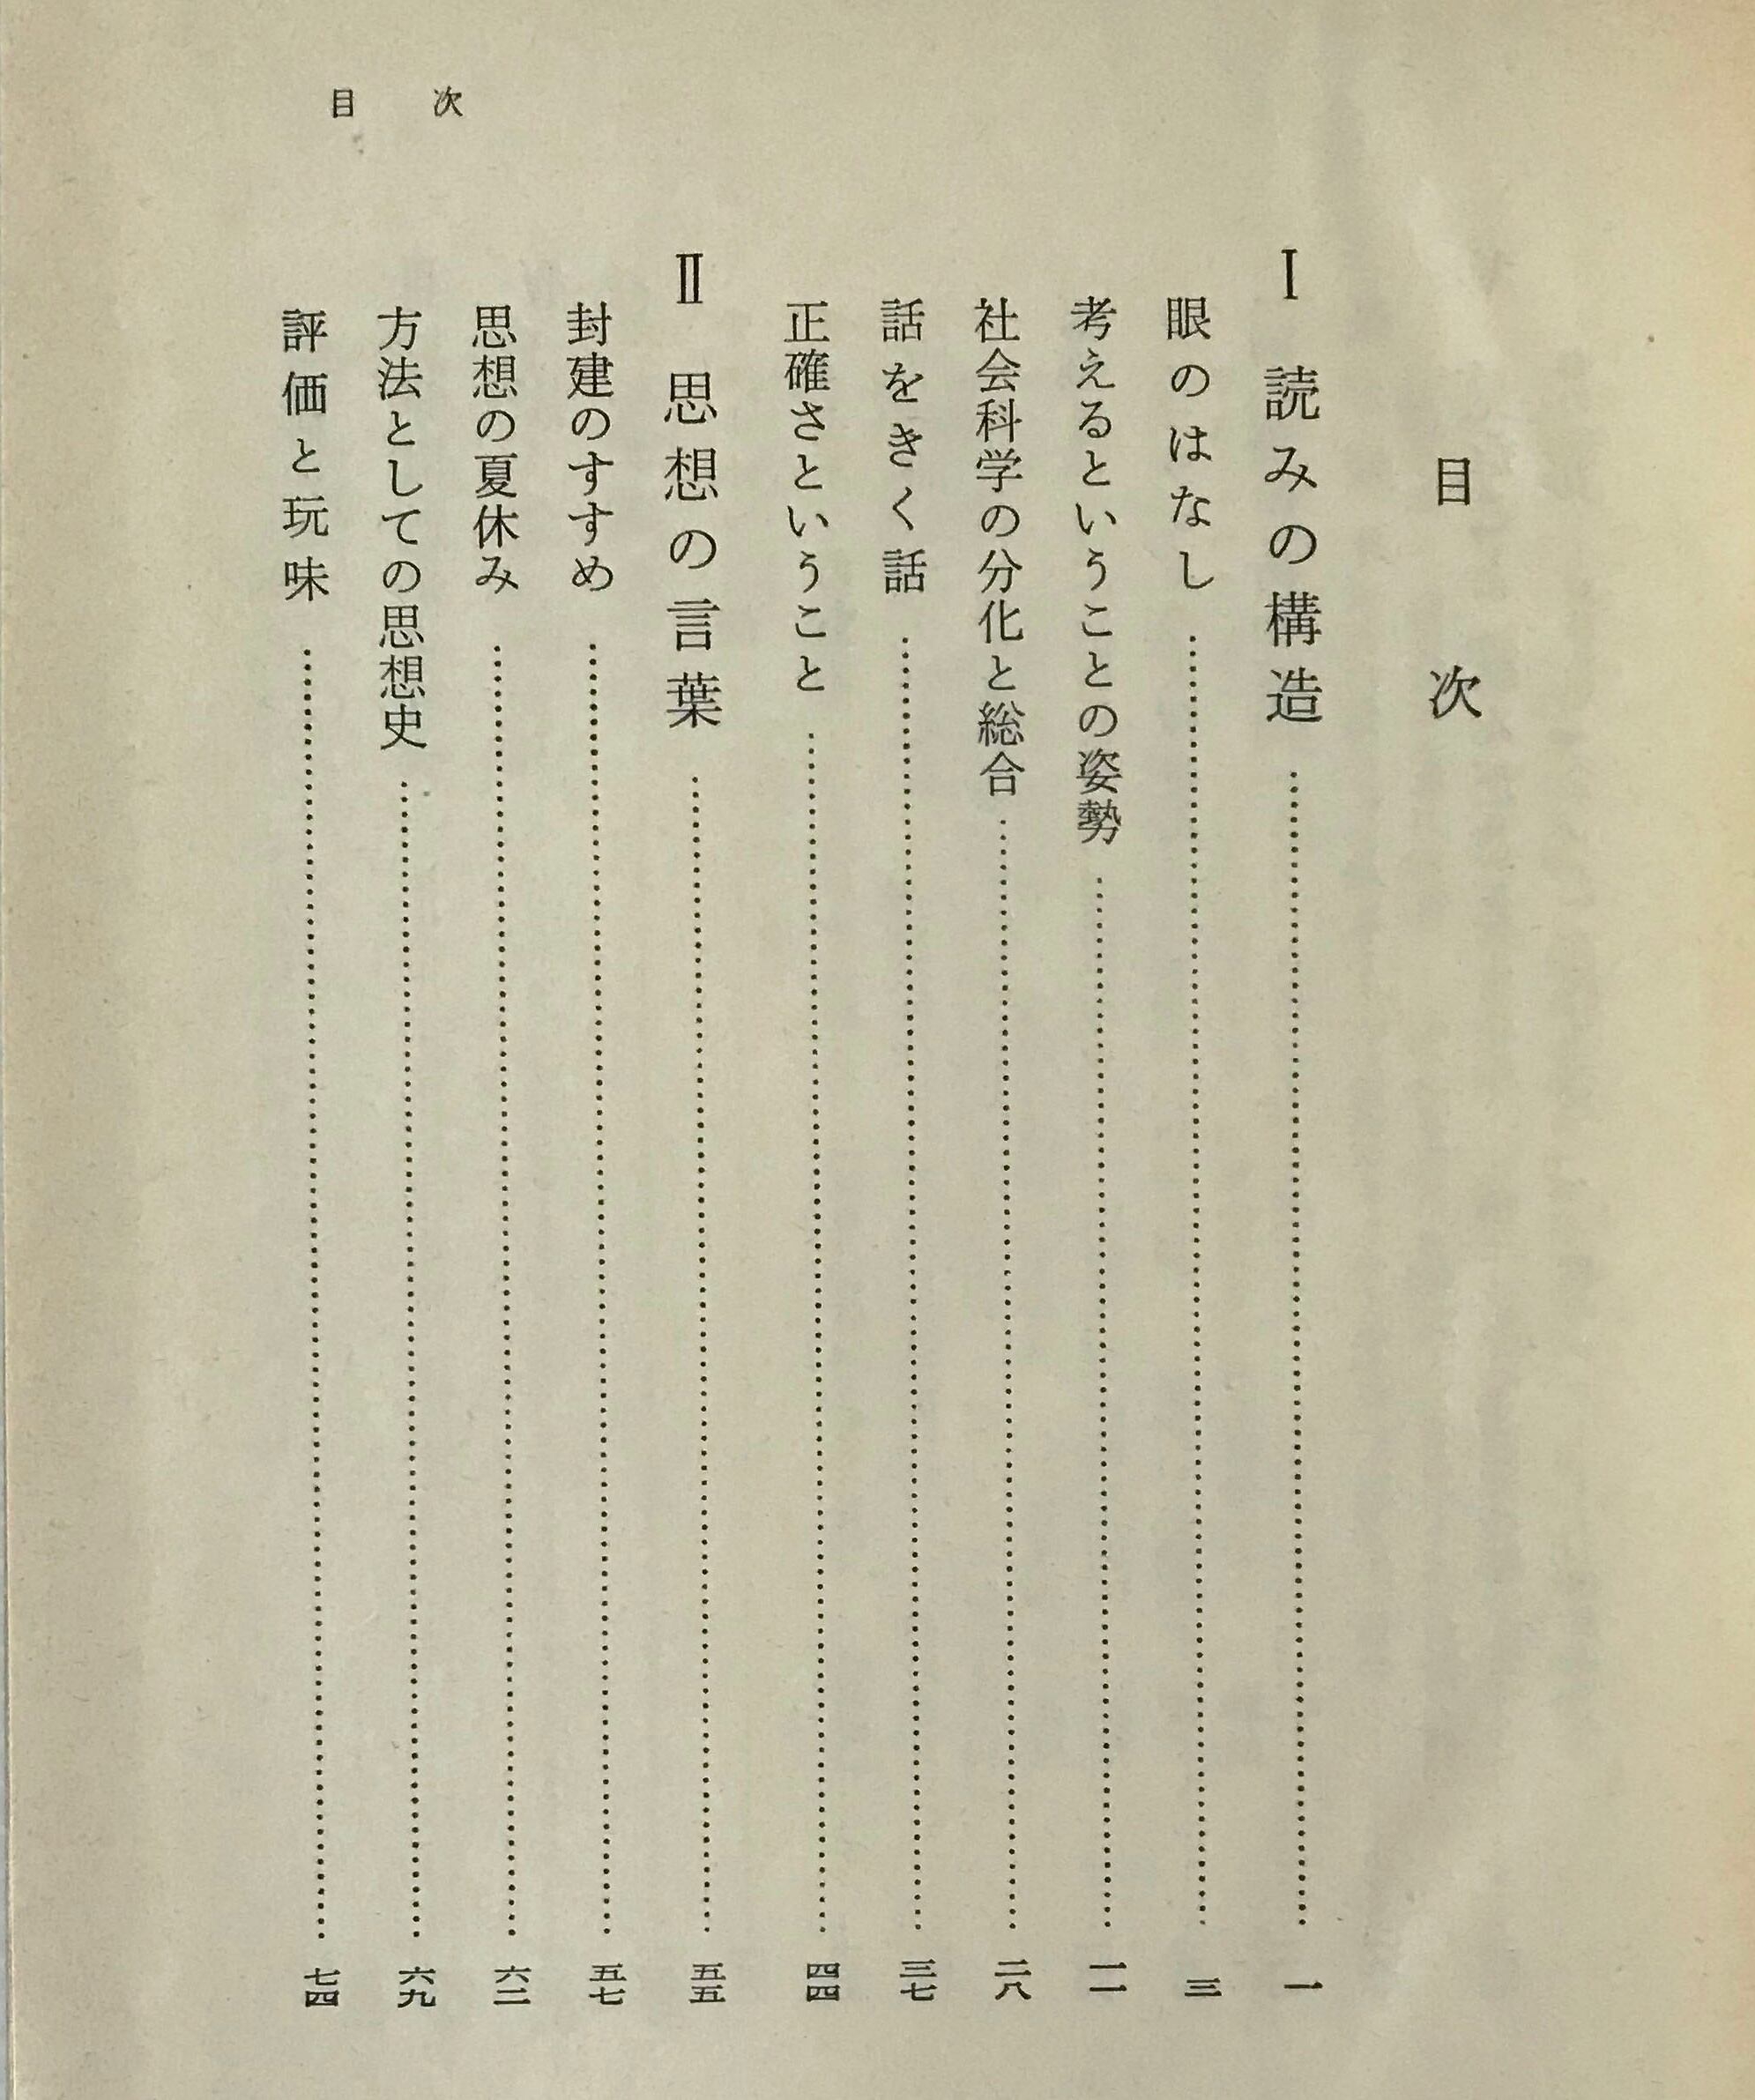 目次
目次
Ⅰ 読みの構造……一
眼のはなし……三
考えるということの姿勢……一一
社会科学の分化と総合……二八
話をきく話……三七
正確さということ……四四
Ⅱ 思想の言葉……五五
封建のすすめ……五七
思想の夏休み……六二
方法としての思想史……六九
評価と玩味……七四